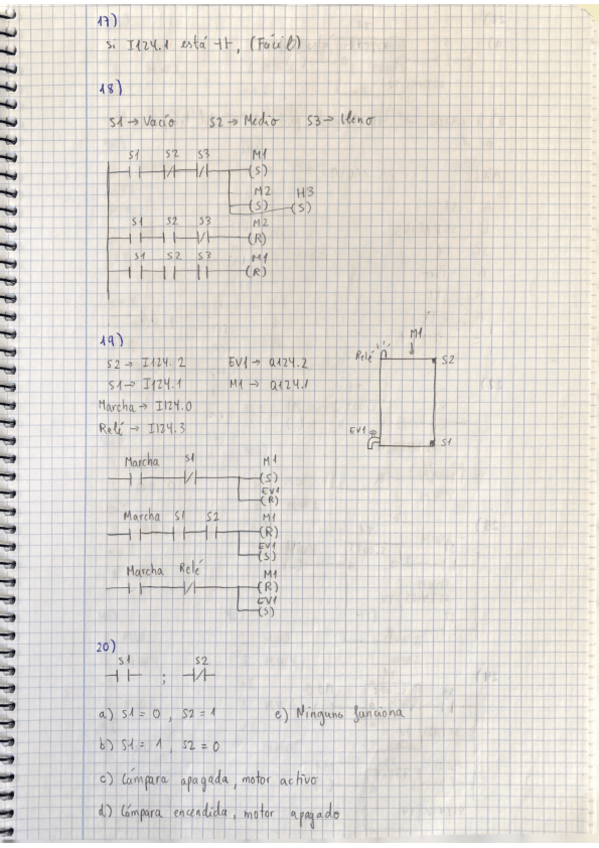 17)
Si I124.1 está ⊣⊢, (Fácil)
18)
S1 → Vacío S2 → Medio S3 → lleno
S1 S2 S3 M1
(S)
M2 H3
(S) (S)
S1 S2 S3 M2
(R)
S1 S2 S3 M1
(R)
19)
S2 → I124.2 EV1 → Q124.2
S1 → I124.1 M1 → Q124.1
Marcha → I124.0
Relé → I124.3
M1
Relé S2
EV1 S1
Marcha S1 M1
(S)
EV1
(R)
Marcha S1 S2 M1
(R)
EV1
(S)
Marcha Relé M1
(R)
EV1
(S)
20)
S1 ; S2
a) S1 = 0 , S2 = 1 e) Ninguno funciona
b) S1 = 1 , S2 = 0
c) Lámpara apagada, motor activo
d) Lámpara encendida, motor apagado